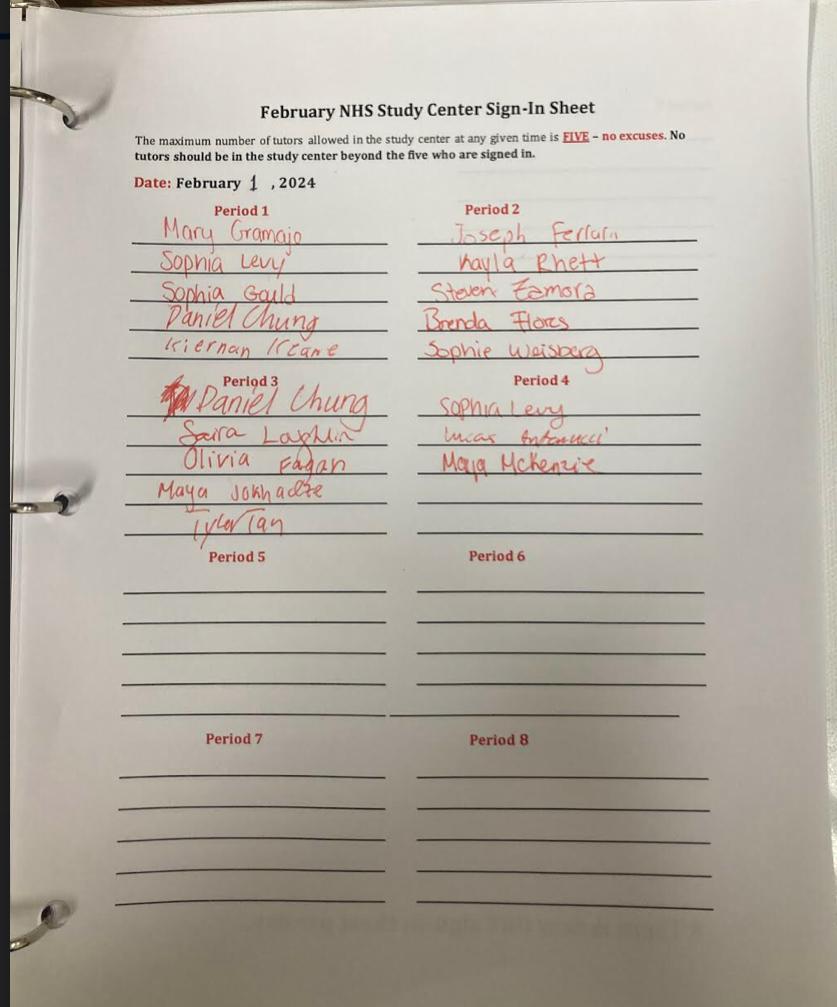 February NHS Study Center Sign-In Sheet
The maximum number of tutors allowed in the study center at any given time is FIVE – no excuses. No
tutors should be in the study center beyond the five who are signed in.
Date: February 1 , 2024
Period 1
Mary Gramajo
Sophia Levy
Sophia Gould
Daniel Chung
Kiernan Keane
Period 2
Joseph
Kayla Rhett
Steven Zamora
Brenda Flores
Sophie Weisberg
Period 3
Daniel Chung
Laughlin
Olivia Fagan
Maya Jokhadze
Tyler Tan
Period 4
Sophia Levy
Lucas Antonucci
Maya McKenzie
Period 5
Period 6
Period 7
Period 8